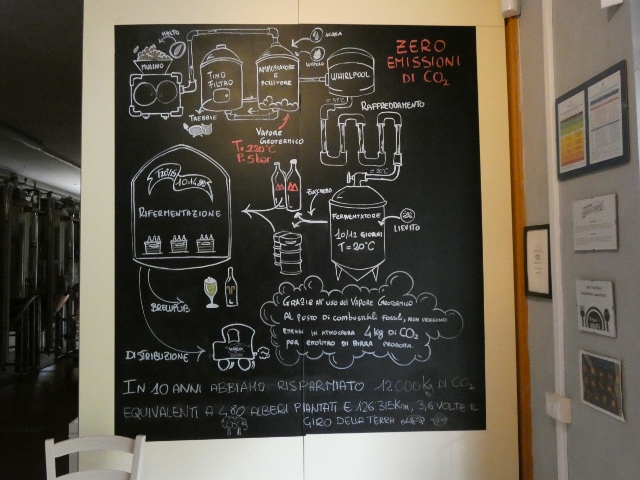 ZERO
EMISSIONI
DI CO₂
MALTO
MULINO
TINO
FILTRO
TREBBIE
ACQUA
LUPPOLO
AMMOSTATORE
E
BOLLITORE
VAPORE
GEOTERMICO
T= 220°C
P. 5 bar
WHIRLPOOL
RAFFREDDAMENTO
ZUCCHERO
FERMENTATORE
10/12 GIORNI
T = 20°C
LIEVITO
RIFERMENTAZIONE
BREWPUB
DISTRIBUZIONE
GRAZIE ALL'USO DEL VAPORE GEOTERMICO
AL POSTO DI COMBUSTIBILI FOSSILI, NON VENGONO
EMESSI IN ATMOSFERA 4 kg DI CO₂
PER ETTOLITRO DI BIRRA PRODOTTA.
IN 10 ANNI ABBIAMO RISPARMIATO 12000kg DI CO₂
EQUIVALENTI A 480 ALBERI PIANTATI E 126.315Km, 3,6 VOLTE IL
GIRO DELLA TERRA